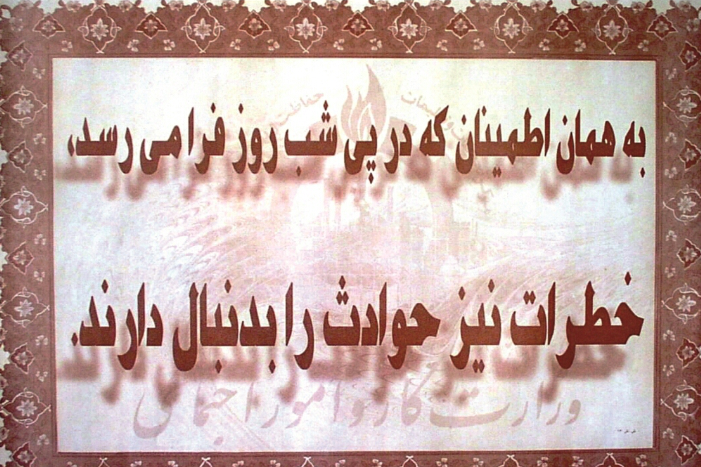 به همان اطمینان که در پی شب روز فرا می رسد،
خطرات نیز حوادث را بدنبال دارند.
وزارت کار و امور اجتماعی